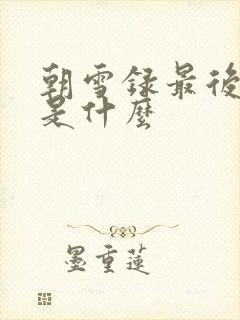 朝雪録最後
是什麼
墨重蓮